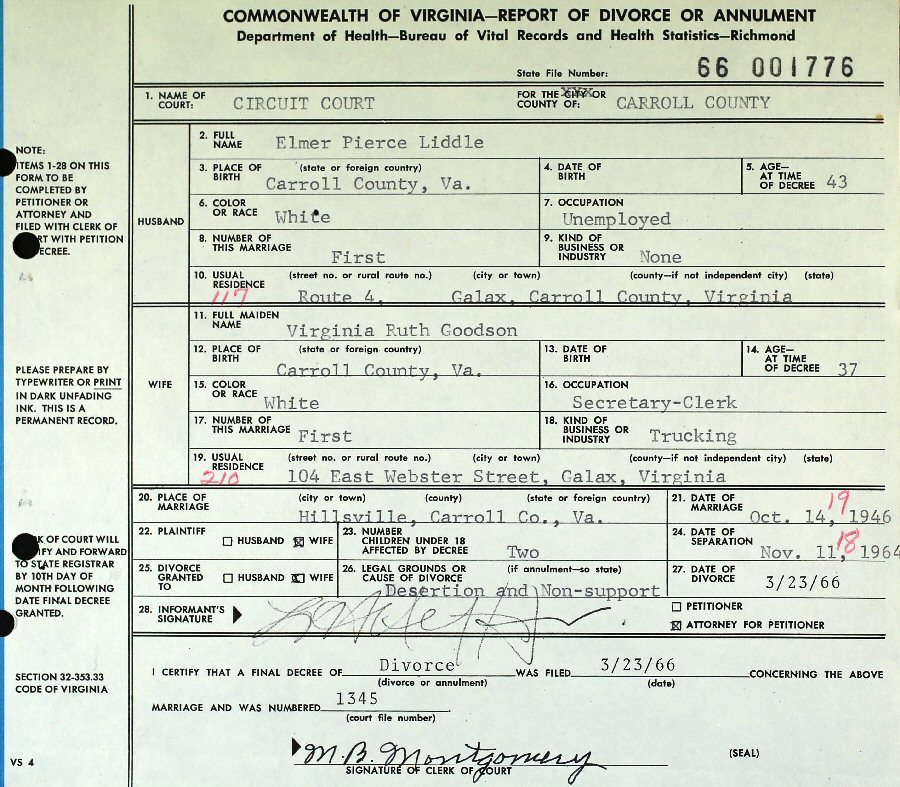 COMMONWEALTH OF VIRGINIA—REPORT OF DIVORCE OR ANNULMENT
Department of Health—Bureau of Vital Records and Health Statistics—Richmond
State File Number: 66 001776
1. NAME OF COURT: CIRCUIT COURT FOR THE CITY OR COUNTY OF: CARROLL COUNTY
NOTE:
ITEMS 1-28 ON THIS
FORM TO BE
COMPLETED BY
PETITIONER OR
ATTORNEY AND
FILED WITH CLERK OF
RT WITH PETITION
ECREE.
HUSBAND
2. FULL NAME Elmer Pierce Liddle
3. PLACE OF BIRTH (state or foreign country) Carroll County, Va. 4. DATE OF BIRTH 5. AGE— AT TIME OF DECREE 43
6. COLOR OR RACE White 7. OCCUPATION Unemployed
8. NUMBER OF THIS MARRIAGE First 9. KIND OF BUSINESS OR INDUSTRY None
10. USUAL RESIDENCE (street no. or rural route no.) (city or town) (county—if not independent city) (state)
117 Route 4, Galax, Carroll County, Virginia
PLEASE PREPARE BY
TYPEWRITER OR PRINT
IN DARK UNFADING
INK. THIS IS A
PERMANENT RECORD.
WIFE
11. FULL MAIDEN NAME Virginia Ruth Goodson
12. PLACE OF BIRTH (state or foreign country) Carroll County, Va. 13. DATE OF BIRTH 14. AGE— AT TIME OF DECREE 37
15. COLOR OR RACE White 16. OCCUPATION Secretary-Clerk
17. NUMBER OF THIS MARRIAGE First 18. KIND OF BUSINESS OR INDUSTRY Trucking
19. USUAL RESIDENCE (street no. or rural route no.) (city or town) (county—if not independent city) (state)
210 104 East Webster Street, Galax, Virginia
20. PLACE OF MARRIAGE (city or town) (county) (state or foreign country) Hillsville, Carroll Co., Va. 21. DATE OF MARRIAGE 19 Oct. 14, 1946
22. PLAINTIFF HUSBAND WIFE 23. NUMBER CHILDREN UNDER 18 AFFECTED BY DECREE Two 24. DATE OF SEPARATION 18 Nov. 11, 1964
25. DIVORCE GRANTED TO HUSBAND WIFE 26. LEGAL GROUNDS OR CAUSE OF DIVORCE (if annulment—so state) Desertion and Non-support 27. DATE OF DIVORCE 3/23/66
28. INFORMANT'S SIGNATURE PETITIONER
ATTORNEY FOR PETITIONER
K OF COURT WILL
FY AND FORWARD
TO STATE REGISTRAR
BY 10TH DAY OF
MONTH FOLLOWING
DATE FINAL DECREE
GRANTED.
SECTION 32-353.33
CODE OF VIRGINIA
I CERTIFY THAT A FINAL DECREE OF Divorce WAS FILED 3/23/66 CONCERNING THE ABOVE
(divorce or annulment) (date)
MARRIAGE AND WAS NUMBERED 1345
(court file number)
M.B. Montgomery (SEAL)
SIGNATURE OF CLERK OF COURT
VS 4